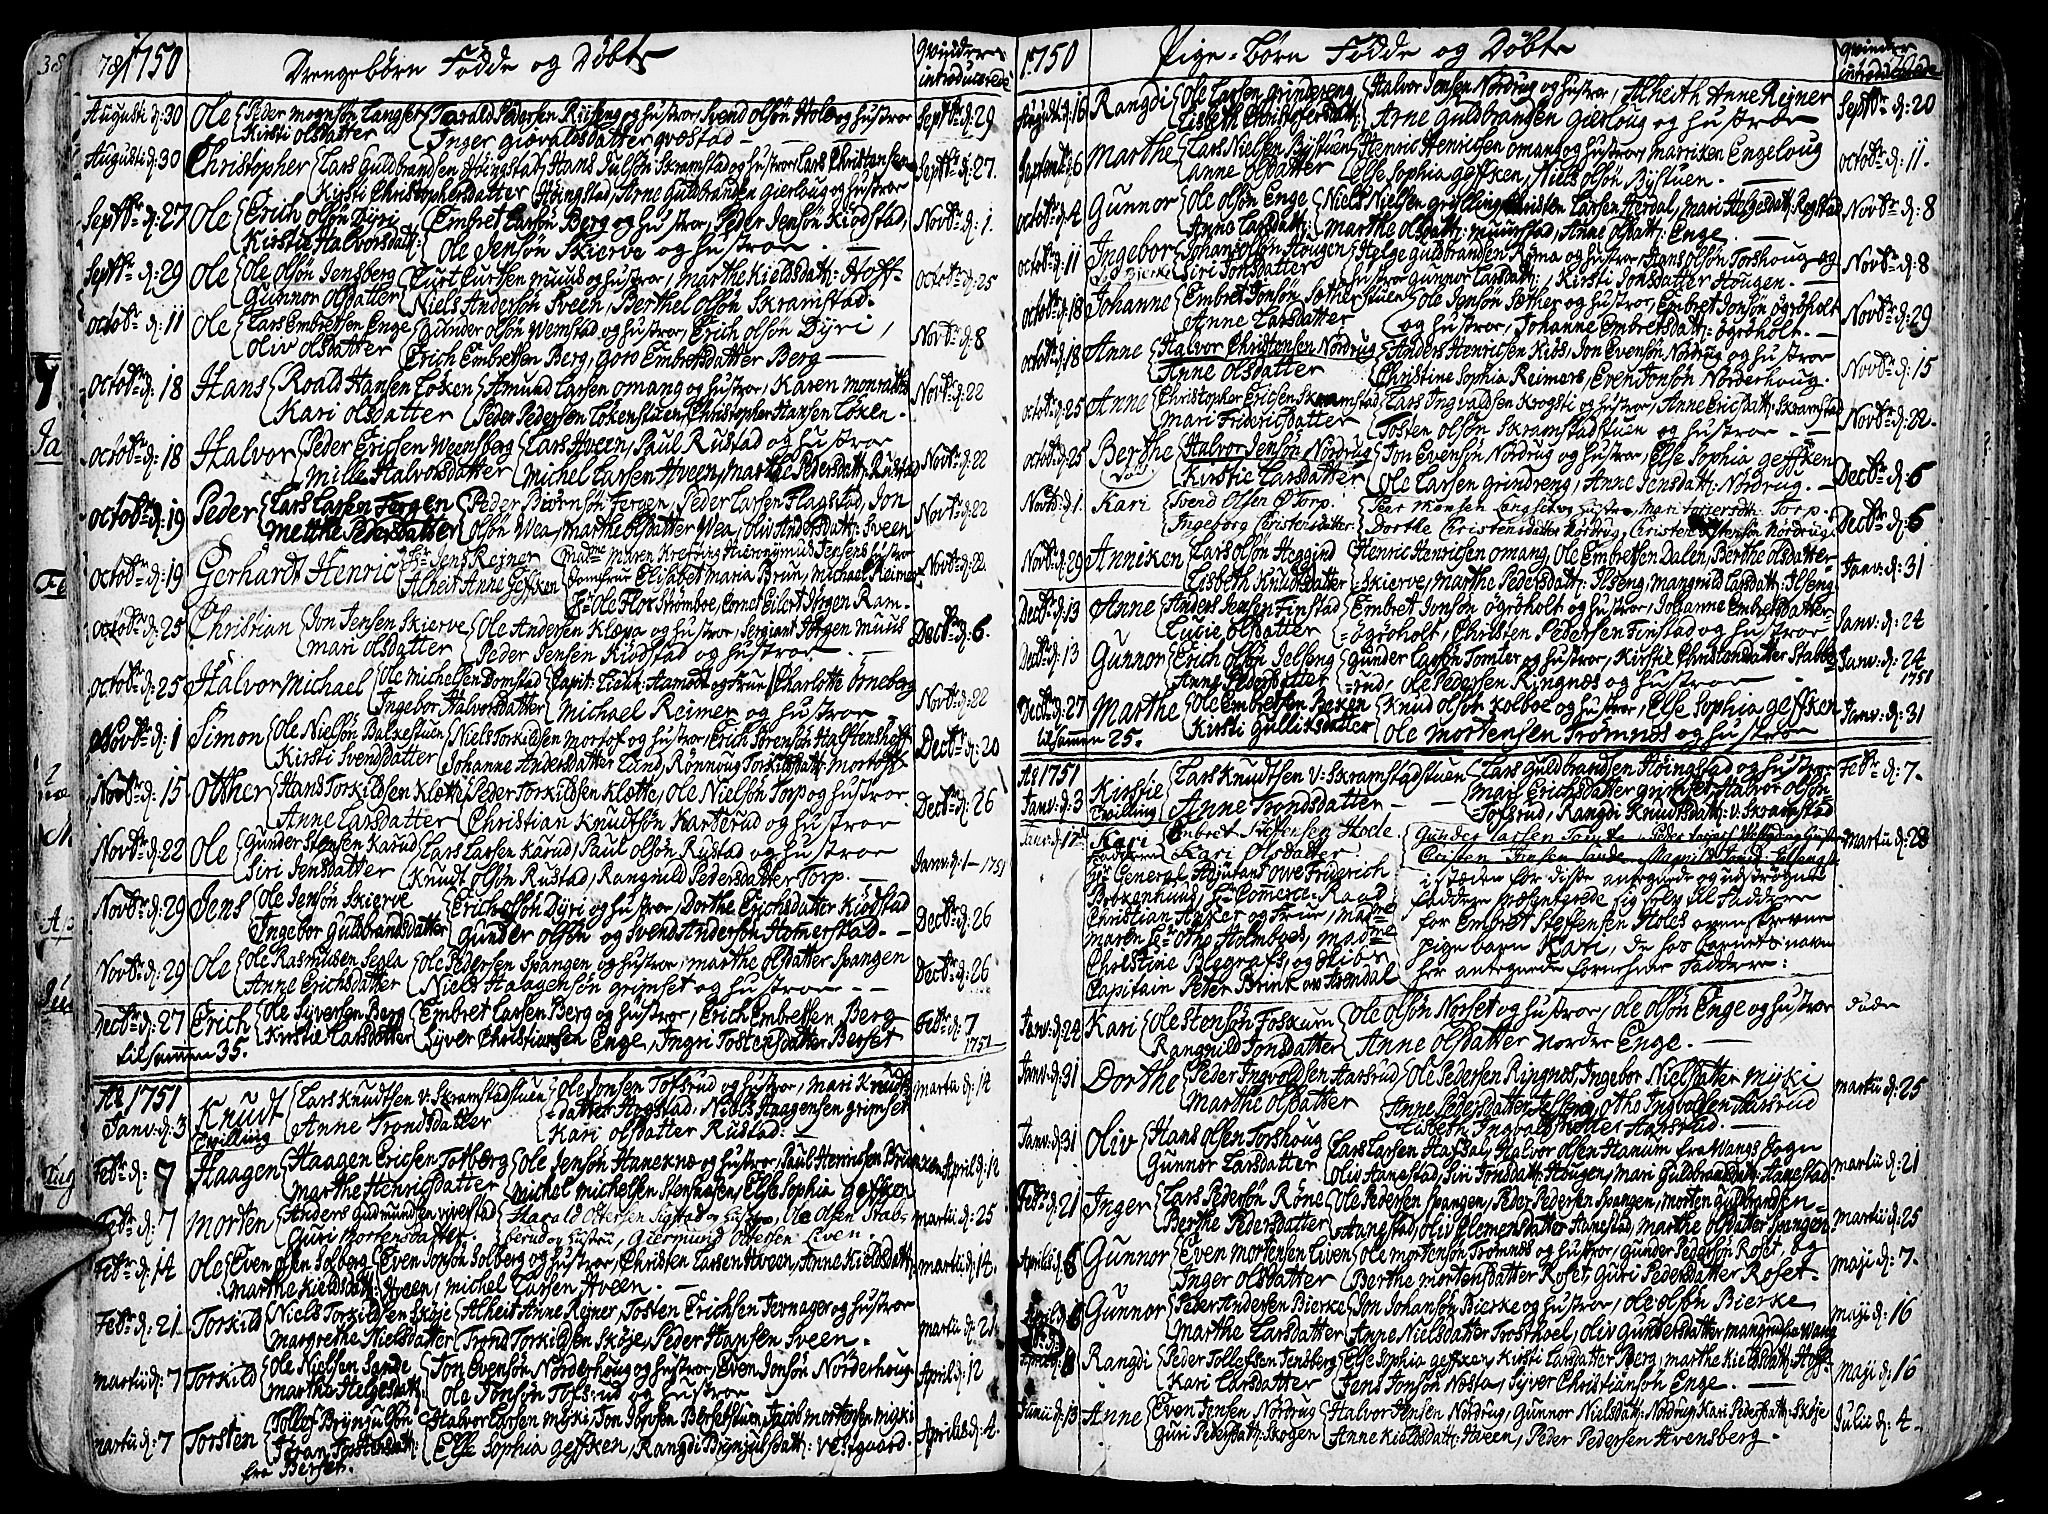 78 1750 Drengebørn Fødde og Døbte Qvinder introducerede
Augusti d: 30 Ole Peder mognsøn Langset Kirsti olsdatter Tarald Pedersen Rustad og hustroe, Svend olsøn Hole og hustroe Inger giævalsdatter græstad Septbr d: 29
Augusti d: 30 Christopher Lars Guldbrandsen Høingstad Kirsti Christophersdatter Hans Julsøn Skramstad og hustroe, Lars Christensen Høingstad, Arne Guldbrandsen Gierloug og hustroe Septbr d: 27.
Septbr d: 27 Ole Erich olsøn Dyri Kirstie Halvorsdatt: Embret Larsøn Berg og hustroe, Peder Jensøn Kiødstad, Ole Jensøn Skierve og hustroe Novbr d: 1.
Septbr d: 29 Ole Ole olsøn Jensberg Gunnor olsdatter Curt Curtsen muus og hustroe, Marthe Kieldsdatt: Hoff Niels Andersøn Sveen, Berthel olsøn Skramstad. octobr d: 25
octobr d: 11 Ole Lars Embretsen Enge Oliv olsdatter Gunder olsøn Wemstad og hustroe, Erich olsøn Dyri, Erich Embretsen Berg, Goro Embretsdatter Berg Novbr d: 8
octobr d: 18 Hans Roald Hansen Løken Kari olsdatter Amund Larsen omang og hustroe, Karen monradt Peder Pedersen Løkenstuen, Christopher Hansen Løken. Novbr d: 22
octobr d: 18 Halvor Peder Ericsen Weensberg Mille Halvorsdatter Lars Hveen, Paul Rustad og hustroe Michel Larsen Hveen, Marthe Pedersdatt: Rustad Novbr d: 22
octobr d: 19 Peder Lars Larsen Fergen Mette Pedersdatter Peder Biørnsøn Fergen, Peder Larsen Flagstad, Jon Olsøn Wea, Marthe olsdatter Wea, Oliv Andersdatt: Sveen Novbr d: 22
octobr d: 19 Gerhardt Henric Hr Jens Reimer Alheit Anne Geffken Madme Maren Hieronymus Jensens hustroe Jomfrue Elisabet Maria Brun, Michael Reimer Hr Ole Flor Strømboe, Cornet Eilert Jørgen Ram. Novbr d: 22
octobr d: 25 Christian Jon Jensen Skierve Mari olsdatter Ole Andersen Klæpa og hustroe, Sergiant Jørgen muus Peder Jensen Kiødstad og hustroe Decbr d: 6.
octobr d: 25 Halvor Michael Ole Michelsen Domstad Ingebor Halvorsdatter Capit: Lieut: Aamodt og Frue, Charlotte Örneberg Michael Reimer og hustroe Novbr d: 22
Novbr d: 1 Simon Ole Nielsøn Balkestuen Kirsti Svendsdatter Niels Torkildsen Mortof og hustroe, Erich Sørensøn Halstenshoff Johanne Andersdatter Lund, Rønnoug Torkildsdatt: Mortoff Decbr d: 20
Novbr d: 15 Otther Hans Torkildsen Klætte Anne Larsdatter Peder Torkildsen Klætte, Ole Nielsøn Torp og hustroe Christian Knudtsøn Karterud og hustroe Decbr d: 26
Novbr d: 22 Ole Gunder Stensøn Karud Siri Jensdatter Lars Larsen Karud, Paul olsøn Rustad og hustroe Knudt olsøn Rustad, Rangnild Pedersdatter Torp. Janv: d: 1 1751
Novbr d: 29 Jens Ole Jensøn Skierve Ingebor Guldbrandsdatter Erich olsøn Dyri og hustroe, Dorthe Erichsdatter Kiødstad Gunder olsøn og Svend Andersøn Homerstad. Decbr d: 26
Novbr d: 29 Ole Ole Rasmusen Segla Anne Erichsdatter Ole Pedersen Spangen og hustroe, marthe olsdatter Spangen Niels Haagensøn grimset og hustroe Decbr d: 26
Decbr d: 27 Erich Ole Siversen Berg Kirstie Larsdatter Embret Larsen Berg og hustroe, Erich Embretsen Berg Syver Christiansen Enge, Ingri Tostensdatter Berset Febr: d: 7 1751
tilsammen 35.
Ao 1751
Janv: d: 3 Knudt Tvilling Lars Knudtsen v: Skramstadstuen Anne Trondsdatter Ole Jonsen Tofsrud og hustroe, Mari Knudtsdatter Hogstad, Niels Haagensen grimset Kari olsdatter Rustad. martii d: 14
Febr: d: 7 Haagen Haagen Ericsen Totberg Marthe Henricsdatter Ole Jensøn Haneknæ og hustroe, Paul Henricsen Michel Michelsen Stenhaasen, Else Sophia Geffken April d: 12
Febr: d: 7 Morten Anders Gudmundsen Guri Mortensdatter. Harald Ottersen Sigstad og hustroe, Ole Olsen Staberud og hustrue, Giermund Ottersen Liven. martii d: 25
Febr: d: 14 Ole Even olsen Solberg Marthe Kieldsdatt: Hveen Even Jonsøn Solberg og hustroe, Christen Larsen Hveen, Anne Kieldsdatt:, michel Larsen Hveen. martii d: 14.
Febr: d: 21 Torkild Niels Torkildsen Skøje Margrethe Nielsdatter Alheit Anne Reimer, Tosten Erichsen Jernager og hustroe Trond Torkildsen Skøje, Peder Hansen Sveen. martii d: 21
martii d: 7 Torkild Ole Nielsen Sande Marthe Helgesdatt: Jon Evensøn Nordерhoug og hustroe, Even Jonsøn Norderhoug Ole Jonsøn Tofsrud og hustroe April d: 12
martii d: 7 Torsten Tollef Brynjulsøn Joran Torstensdatt: fra Berset. Halvor Larsen miski, Jon Josvsen Bersetstuen, Jacob mortensen miski Else Sophia geffken, Rangdi Brynjulsdatt: Vestgaard. Aprilis d: 4.
1750 Pige-børn Fødde og Døbte Qvinder introducerede
August d: 16 Rangdi Ole Larsen grindreng Lisbeth Christophersdatt: Halvor Jensen Nordrug og hustroe, Alheith Anne Reimer Arne Guldbrandsen Gierloug og hustroe Septbr d: 20
Septemb: d: 6 Marthe Lars Nielsen Bystuen Anne olsdatter Henric Henricsen omang og hustroe, Marriken Engeloug Else Sophia geffken, Niels olsøn Bystuen. octobr: d: 11.
octobr d: 4 Gunnor Ole olsøn Enge Anne Larsdatt: Niels Nielsen grylling, Christen Larsen Herdal, Mari Helgesdatt: Rogstad Marthe olsdatt: muurstad, Anne olsdatt: Enge. Novbr d: 8
octobr d: 11 Ingebor Johans olsøn Hougen Siri Jonsdatter Helge guldbrandsen Røma og hustroe, Hans olsøn Torshoug og hustroe Gunnor Larsdatt:, Kirsti Jonsdatter Hougen. Novbr d: 8
octobr d: 18 Johanne Embret Jonsøn Sætherstuen Anne Larsdatter Ole Jensøn Sether og hustroe, Embret Jonsøn øgrøholt og hustroe, Johanne Embretsdatt: øgrøholt. Novbr d: 29
octobr d: 18 Anne Halvor Christensen Nordrug Anne olsdatter Anders Henricsen Kiøs, Jon Evensøn Nordrug og hustroe Christine Sophia Reimers, Even Jonsøn Norderhoug. Novbr d: 15
octobr d: 25 Anne Christopher Ericsen Skramstad Mari Fridricsdatter Lars Ingvaldsen Krogsti og hustroe, Anne Ericsdatt: Skramstad Tosten olsøn Skramstadstuen og hustroe Novbr d: 22.
octobr d: 25 Berthe død Halvor Jensøn Nordrug Kirstie Larsdatter Jon Evensøn Nordrug og hustroe, Else Sophia geffken Ole Larsen grindreng, Anne Jensdatt: Nordrug. Decbr d: 6
Novbr d: 1. Kari Svend Olsen Ø Torp. Ingeborg Christensdatter Peer Monsen Langset og hustroe, Mari Torp. Dorthe Christensdatter Nordrug, Christen Nordrug Decbr d: 6
Novbr d: 29 Anniken Lars olsøn Heggind Lisbeth Knudsdatter Henric Henricsen omang, Ole Embretsen Dalen, Berthe olsdatter Skierve, Marthe Pedersdatt: Ilseng, Mangnild Larsdatt: Ilseng Janv: d: 31
Decbr d: 13 Anne Anders Jensen Finstad Lucie olsdatter Embret Jonsøn øgrøholt og hustroe, Johanne Embretsdatter øgrøholt, Christen Pedersen Finstad og hustroe Janv: d: 24
Decbr d: 13 Gunnor Erich olsøn Jelseng Anne Pedersdatter Gunder Larsøn Tomter og hustroe, Kirstie Christensdatter Stabberud, Ole Pedersen Ringnæs og hustroe Janv: d: 24 1751
Decbr d: 27 Marthe Ole Embretsen Beken Kirsti Gulliksdatter Knud olsøn Kolboe og hustroe, Else Sophia geffken Ole Mortensen Trømnæs og hustroe Janv: d: 31
tilsammen 25.
Ao 1751
Janv: d: 3 Kirstie Tvilling Lars Knudtsen v: Skramstadstuen Anne Trondsdatter Lars Guldbrandsen Høingstad og hustroe Mari Erichsdatter grimset, Halvor olsøn Tofsrud, Rangdi Knudsdatt: v: Skramstad Febr: d: 7.
Janv: d: 17 Kari Embret Steffensen Hole Kari Olsdatter
Faddere hr General Adjutant Ove Fridrich Bokkenhuus, Hr Commerce-Raad Christian Anker og Frue, Madme Maren Sr Otho Holmboes, Madme Christine Blegrafs, og Capitain Peter Brink
i steden for disse antegnede og udstregne Faddere præsenterede sig selv til Faddere for Embret Steffensen Holes ovenskrevne pige barn Kari, de hos barnets navn her antegnede fornehme Faddere: Martii d: 28
Janv: d: 24 Kari Ole Stensøn Foskum Rangnild Jonsdatter Ole olsøn Norset og hustroe, Ole olsøn Enge og hustroe Anne olsdatter Nordre Enge.
Janv: d: 31 Dorthe Peder Ingvoldsen Aarsrud Marthe olsdatter Ole Pedersen Ringnæs, Ingebor Nielsdatter Miski Anne Pedersdatter Jelseng, Otho Ingvoldsen Aarsrud Lisbeth Ingvoldsdatter Aarsrud. martii d: 25
Janv: d: 31 Oliv Hans olsen Torshoug Gunnor Larsdatter Lars Larsen Hafsal, Halvor olsen Hanum fra Wangs Sogn Oliv Hanestad, Siri Jonsdatter Hougen, Mari Guldbrandsdatt: Hanestad martii d: 21
Febr: d: 21 Inger Lars Pedersøn Røne Berthe Pedersdatter Ole Pedersen Spangen, Peder Pedersen Spangen, Morten guldbrandsen Aanestad, Oliv Clemensdatter Aanestad, Marthe olsdatter Spangen martii d: 25
Aprilis d: 6 Gunnor Even Mortensen Liven Inger olsdatter Ole Mortensøn Trømnæs og hustroe, Gunder Pedersøn Roset, og Berthe Mortensdatter Roset, Guri Pedersdatter Roset. maji d: 7.
April d: Gunnor Peder Andersen Bierke Marthe Larsdatter Jon Johansøn Bierke og hustroe, Ole olsøn Bierke Anne Nielsdatter Trosthoel, Oliv Gundersdatter Mangrud fra Wang maji d: 16
Rangdi Peder Tollefsen Jensberg Kari Larsdatter Else Sophia geffken, Kirsti Larsdatter Berg, Marthe Kieldsdatt: Hoff Jens Jonsøn Nosta, Syver Christiansøn Enge. maji d: 16
Junii d: 13 Anne Even Jensen Nordrug Guri Pedersdatt: Skogen Halvor Jensen Nordrug, Gunnor Nielsdatt: Nordrug, Kari Pedersdatt: Skøje Anne Kieldsdatt: Hveen, Peder Pedersen Hvensberg. Julii d: 4